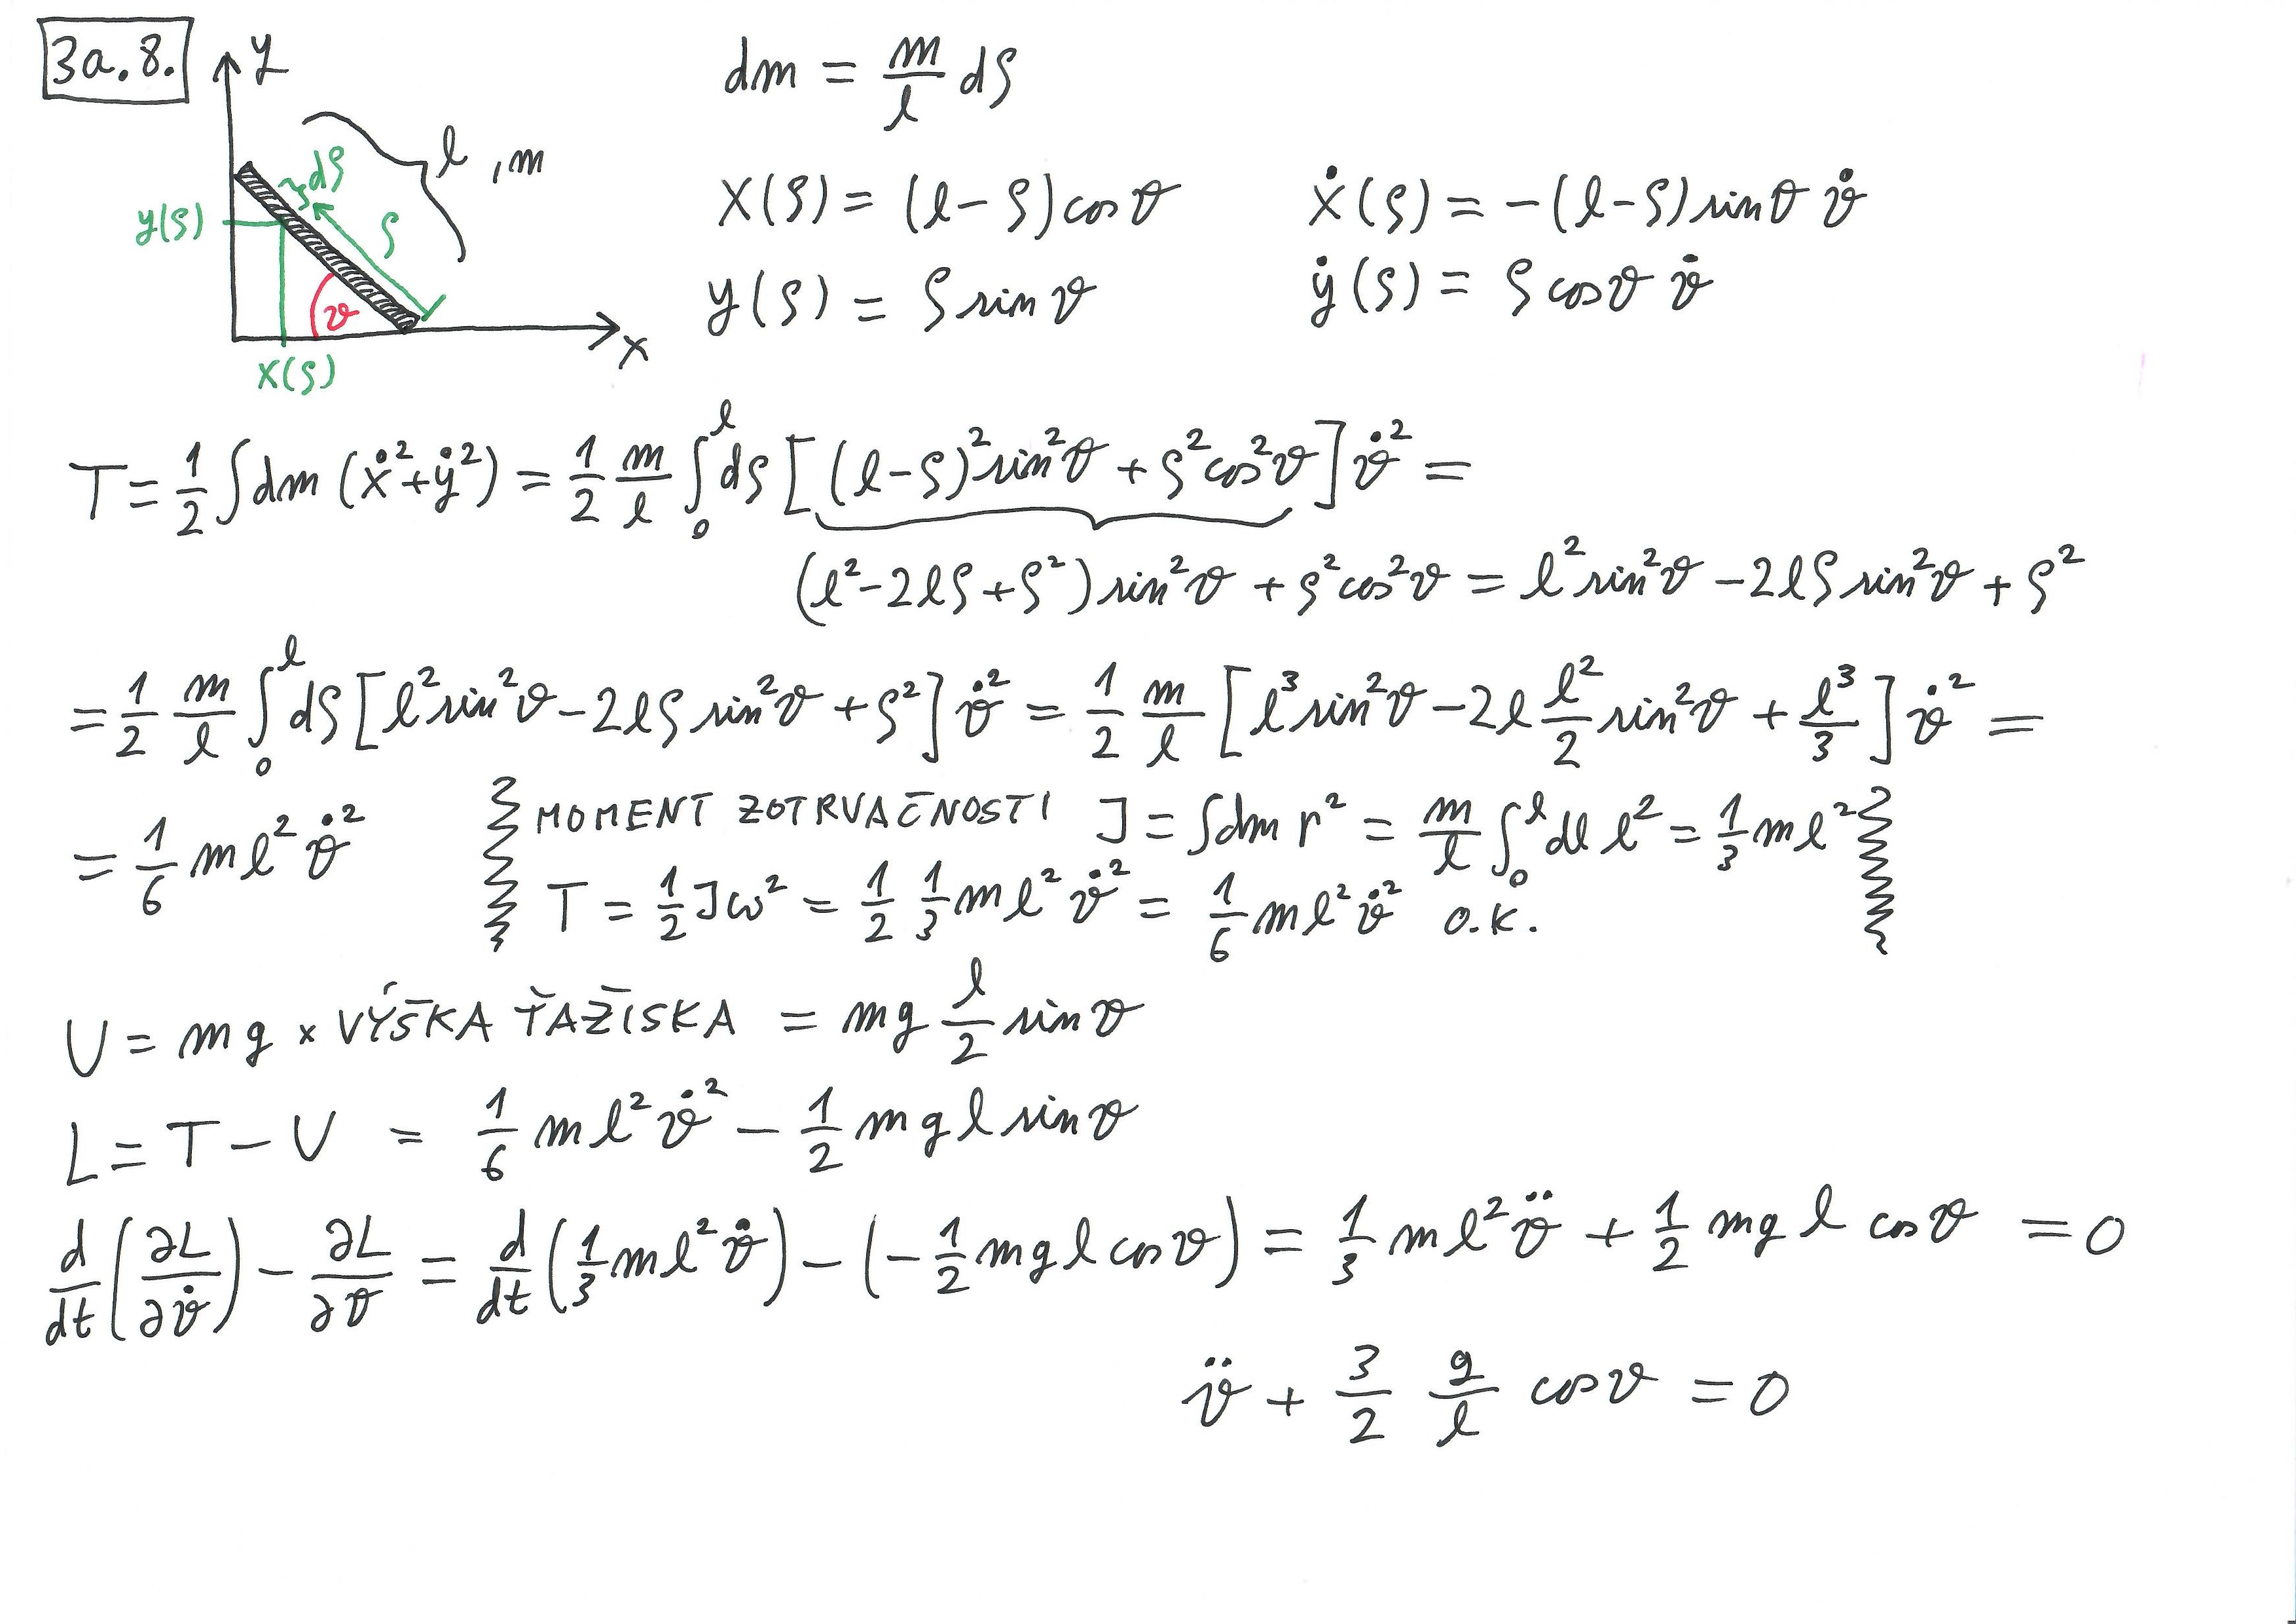 3a.8.
y
l , m
dρ
ρ
y(ρ)
ϑ
x
x(ρ)
dm = m/l dρ
x(ρ) = (l-ρ) cos ϑ    ẋ(ρ) = -(l-ρ) sin ϑ ϑ̇
y(ρ) = ρ sin ϑ    ẏ(ρ) = ρ cos ϑ ϑ̇
T = 1/2 ∫ dm (ẋ² + ẏ²) = 1/2 m/l ∫₀ˡ dρ [(l-ρ)² sin²ϑ + ρ² cos²ϑ] ϑ̇² =
(l² - 2lρ + ρ²) sin²ϑ + ρ² cos²ϑ = l² sin²ϑ - 2lρ sin²ϑ + ρ²
= 1/2 m/l ∫₀ˡ dρ [l² sin²ϑ - 2lρ sin²ϑ + ρ²] ϑ̇² = 1/2 m/l [l³ sin²ϑ - 2l l²/2 sin²ϑ + l³/3] ϑ̇² =
= 1/6 ml² ϑ̇²
MOMENT ZOTRVAČNOSTI J = ∫dm r² = m/l ∫₀ˡ dl l² = 1/3 ml²
T = 1/2 Jω² = 1/2 1/3 ml² ϑ̇² = 1/6 ml² ϑ̇² O.K.
U = mg × VÝŠKA ŤAŽISKA = mg l/2 sin ϑ
L = T - U = 1/6 ml² ϑ̇² - 1/2 mgl sin ϑ
d/dt (∂L/∂ϑ̇) - ∂L/∂ϑ = d/dt (1/3 ml² ϑ̇) - (-1/2 mgl cos ϑ) = 1/3 ml² ϑ̈ + 1/2 mgl cos ϑ = 0
ϑ̈ + 3/2 g/l cos ϑ = 0